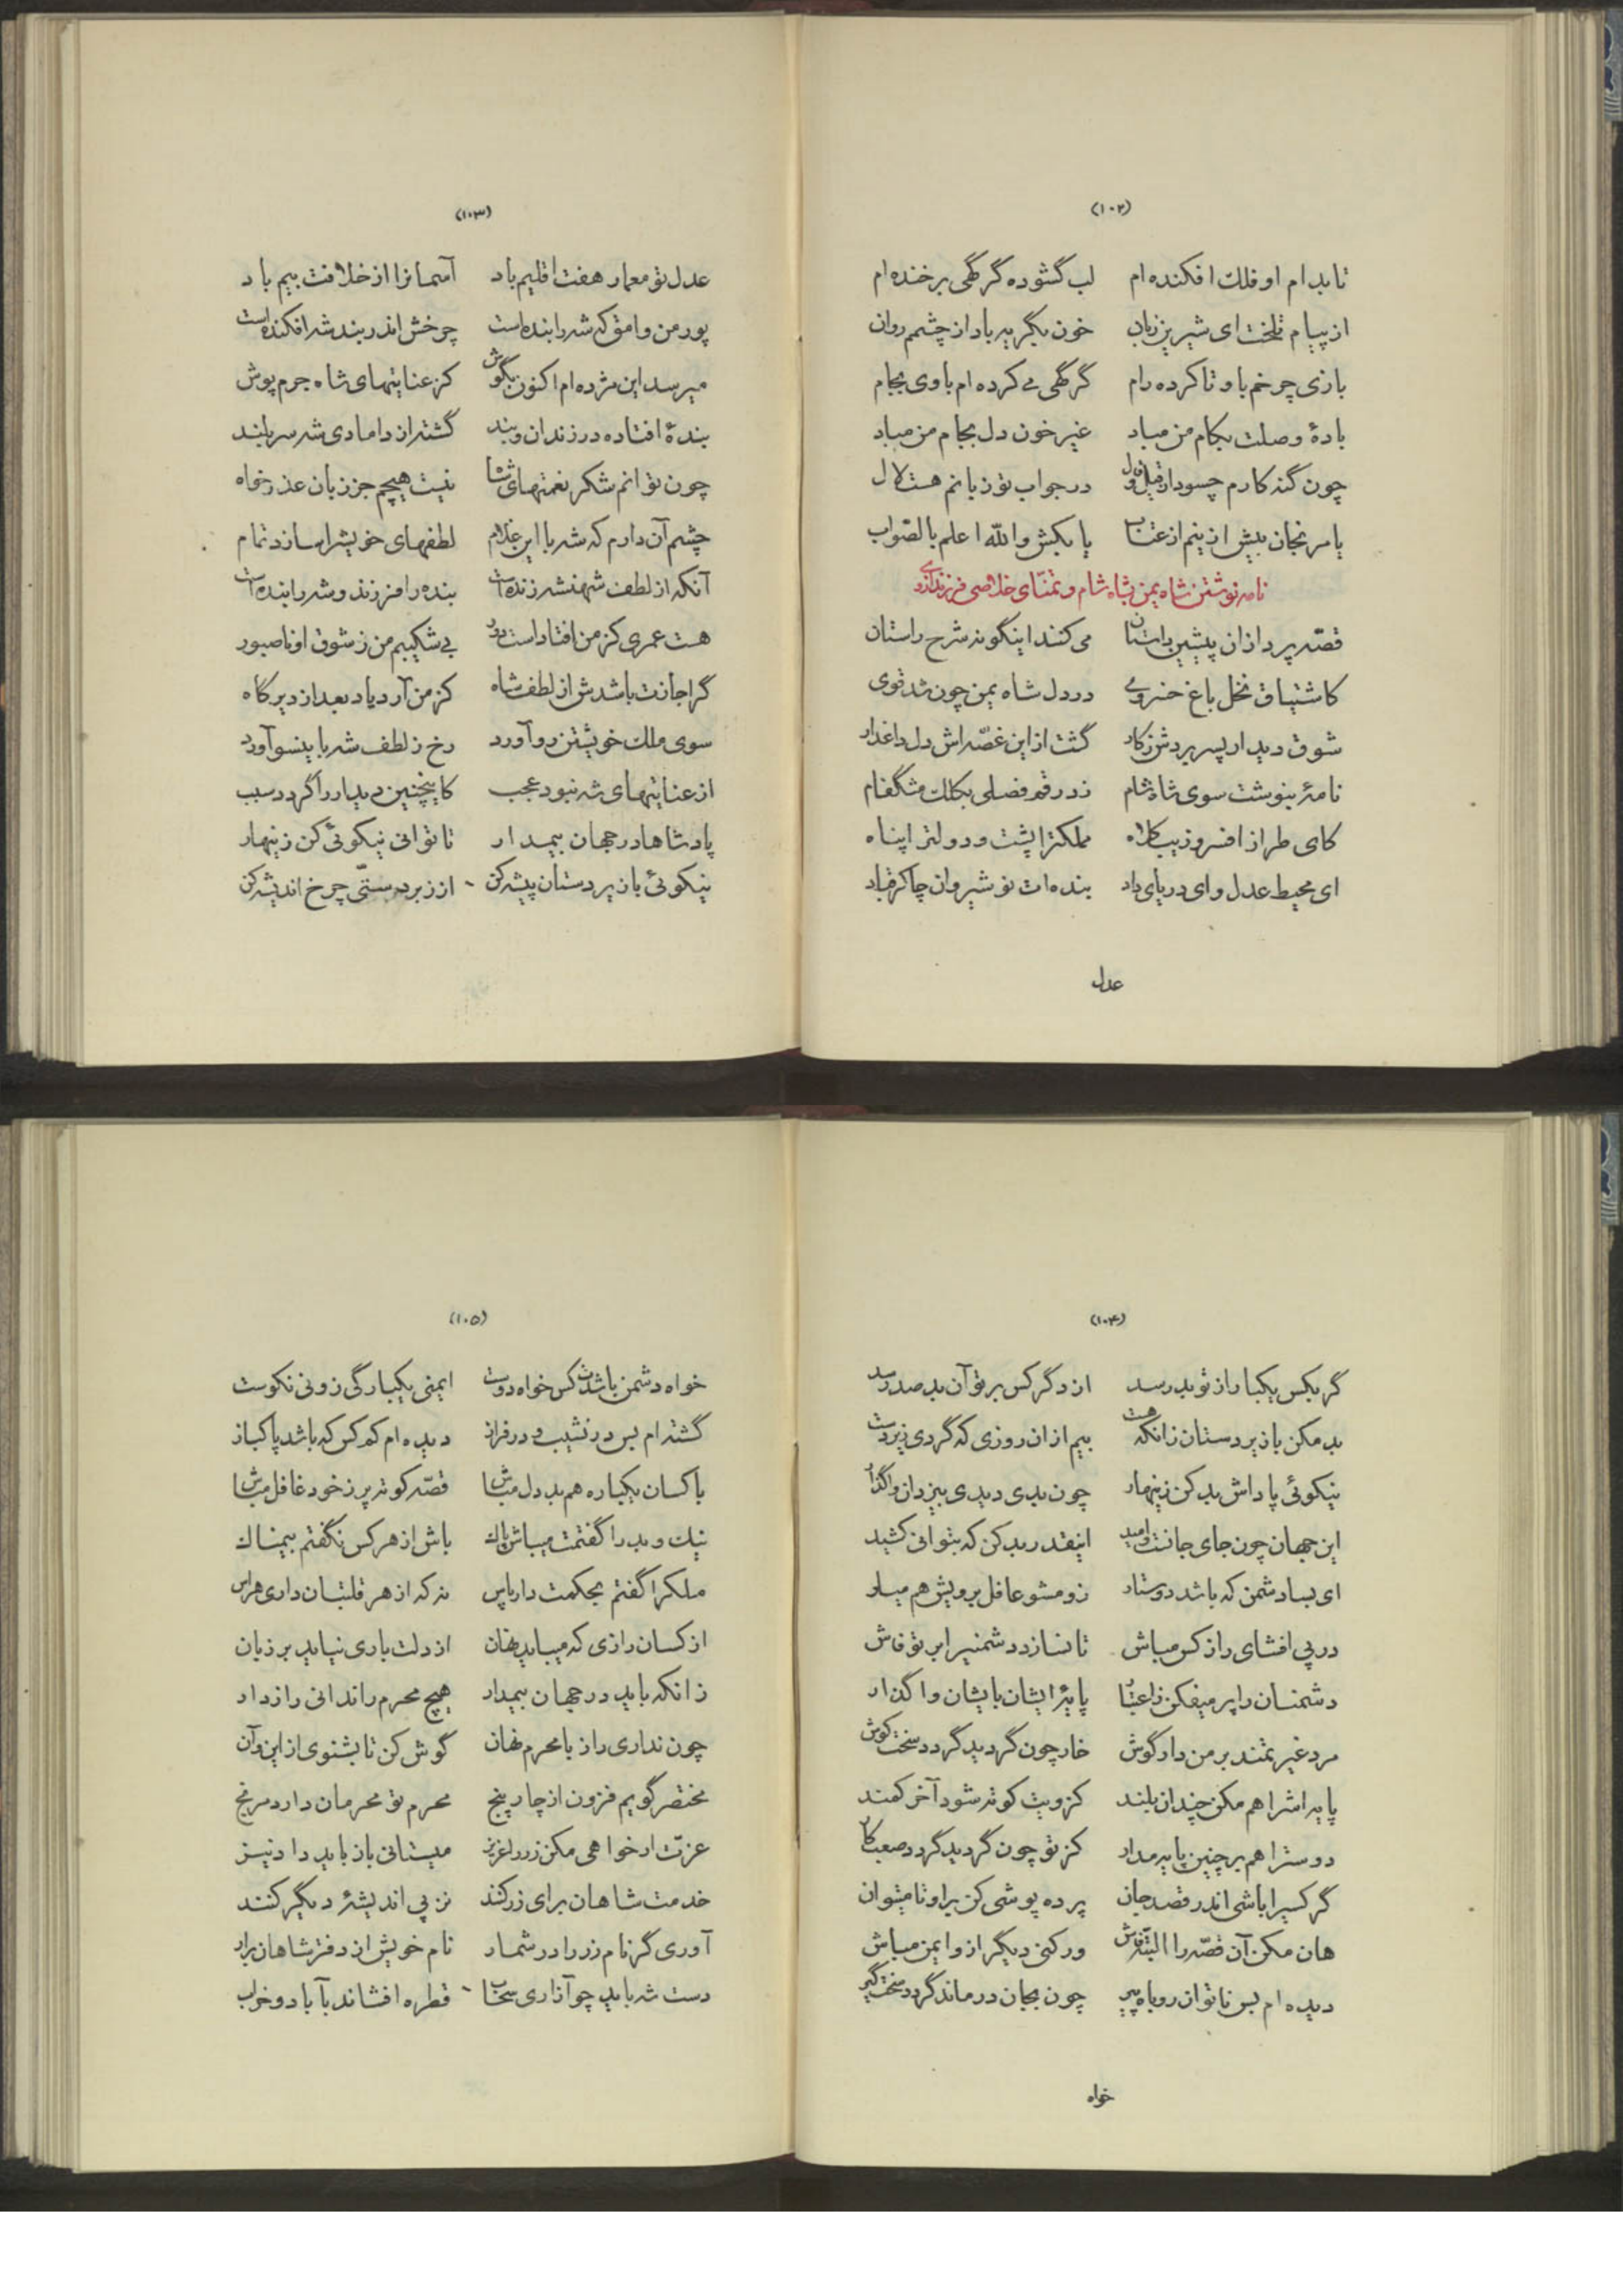 (۱۰۲)
تا بدام او فلک افکنده ام لب گشوده گر گهی برخنده ام
از پیام تلخت ای شیرین زبان خون بگریه باد از چشمم روان
بازی چرخم باو تا کرده رام گر گهی می کرده ام باوی بجام
بادهٔ وصلت بکام من مباد غیر خون دل بجام من مباد
چون گنه کارم چسود از قیل و قال در جواب تو زبانم هست لال
یا مرنجان بیش از ینم از عتاب یا بکش والله اعلم بالصّواب
نامه نوشتن شاه یمن بشاه شام و تمنّای خلاصی فرزند از وی
قصّه پردازان پیشین داستان می کنند اینگونه شرح راستان
کاشتیاق نخل باغ خسروی در دل شاه یمن چون شد قوی
شوق دیدار پسر بردش ز کار گشت از این غصّه اش دل داغدار
نامهٔ بنوشت سوی شاه شام زد رقم فصلی بکلک مشگفام
کای طراز افسر و زیب کلاه مملکترا پشت و دولترا پناه
ای محیط عدل و ای دریای داد بنده ات نوشیروان چاکر قباد
عدل
(۱۰۳)
عدل تو معمار هفت اقلیم باد آسمانرا از خلافت بیم باد
پور من وامق که شه را بنده است چرخش اندر بند شه افکنده است
میرسد این مژده ام اکنون بگوش کز عنایتهای شاه جرم پوش
بندهٔ افتاده در زندان و بند گشته از دامادی شه سربلند
چون توانم شکر نعمتهای شاه نیست هیچم جز زبان عذر خواه
چشم آن دارم که شه با این غلام لطفهای خویشرا سازد تمام
آنکه از لطف شهنشه زنده است بنده را فرزند و شه را بنده است
هست عمری کز من افتاد است دور بی شکیبم من ز شوق او ناصبور
گر اجازت باشدش از لطف شاه کز من آرد یاد بعد از دیر گاه
سوی ملک خویشتن رو آورد رخ ز لطف شه باینسو آورد
از عنایتهای شه نبود عجب کاینچنین دیدار را گردد سبب
پادشاها در جهان بیمدار تا توانی نیکوئی کن زینهار
نیکوئی با زیردستان پیشه کن از زبردستیّ چرخ اندیشه کن
(۱۰۴)
گر بکس یکبار از تو بد رسد از دگر کس بر تو آن بد صد رسد
بد مکن با زیردستان زانکه هست بیم از ان روزی که گردی زیردست
نیکوئی پاداش بد کن زینهار چون بدی دیدی بیزدان واگذار
این جهان چون جای جانست و امید اینقدر بد کن که بتوانی کشید
ای بسا دشمن که باشد دوستار زو مشو غافل برویش هم میار
در پی افشای راز کس مباش تا نسازد دشمنیرا بر تو فاش
دشمنان را پر میفکن ز اعتبار پایهٔ ایشان بایشان واگذار
مرد غیرتمند بر من دار گوش خار چون گردید گردد سخت کوش
پایه اشرا هم مکن چندان بلند کز ویت کوته شود آخر کمند
دوسترا هم بر چنین پایه مدار کز تو چون گردید گردد صعب کار
گر کسیرا باشی اندر قصد جان پرده پوشی کن براو تا میتوان
هان مکن آن قصّه را البتّه فاش ور کنی دیگر از و ایمن مباش
دیده ام بس ناتوان روباه پیر چون بجان درماند گردد سخت گیر
خواه
(۱۰۵)
خواه دشمن باشدت کس خواه دوست ایمنی یکبارگی زو نی نکوست
گشته ام بس در نشیب و در فراز دیده ام کم کس که باشد پاکباز
با کسان یکباره هم بد دل مباش قصّه کوته پر ز خود غافل مباش
نیک و بد را گفتمت میباش پاک باش از هر کس نگفتم بیمناک
ملکرا گفتم بحکمت دار پاس نه که از هر قلتبان داری هراس
از کسان رازی که میباید نهان از دلت باری نیاید بر زبان
زانکه باید در جهان بیمدار هیچ محرم را ندانی رازدار
چون نداری راز با محرم نهان گوش کن تا بشنوی از این و آن
مختصر گویم فزون از چار پنج محرم تو محرمان دارد مرنج
عزّت ار خواهی مکن زر را عزیز میستانی باز باید داد نیز
خدمت شاهان برای زر کنند نز پی اندیشهٔ دیگر کنند
آوری گر نام زر را در شمار نام خویش از دفتر شاهان برار
دست شه باید چو آذاری سحاب قطره افشاند بآباد و خراب